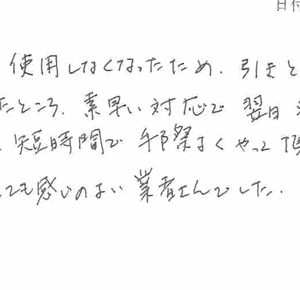 日付
使用しなくなったため、引きと
たところ、素早い対応で翌日
短時間で手際よくやって頂
ても感じのよい業者さんでした。